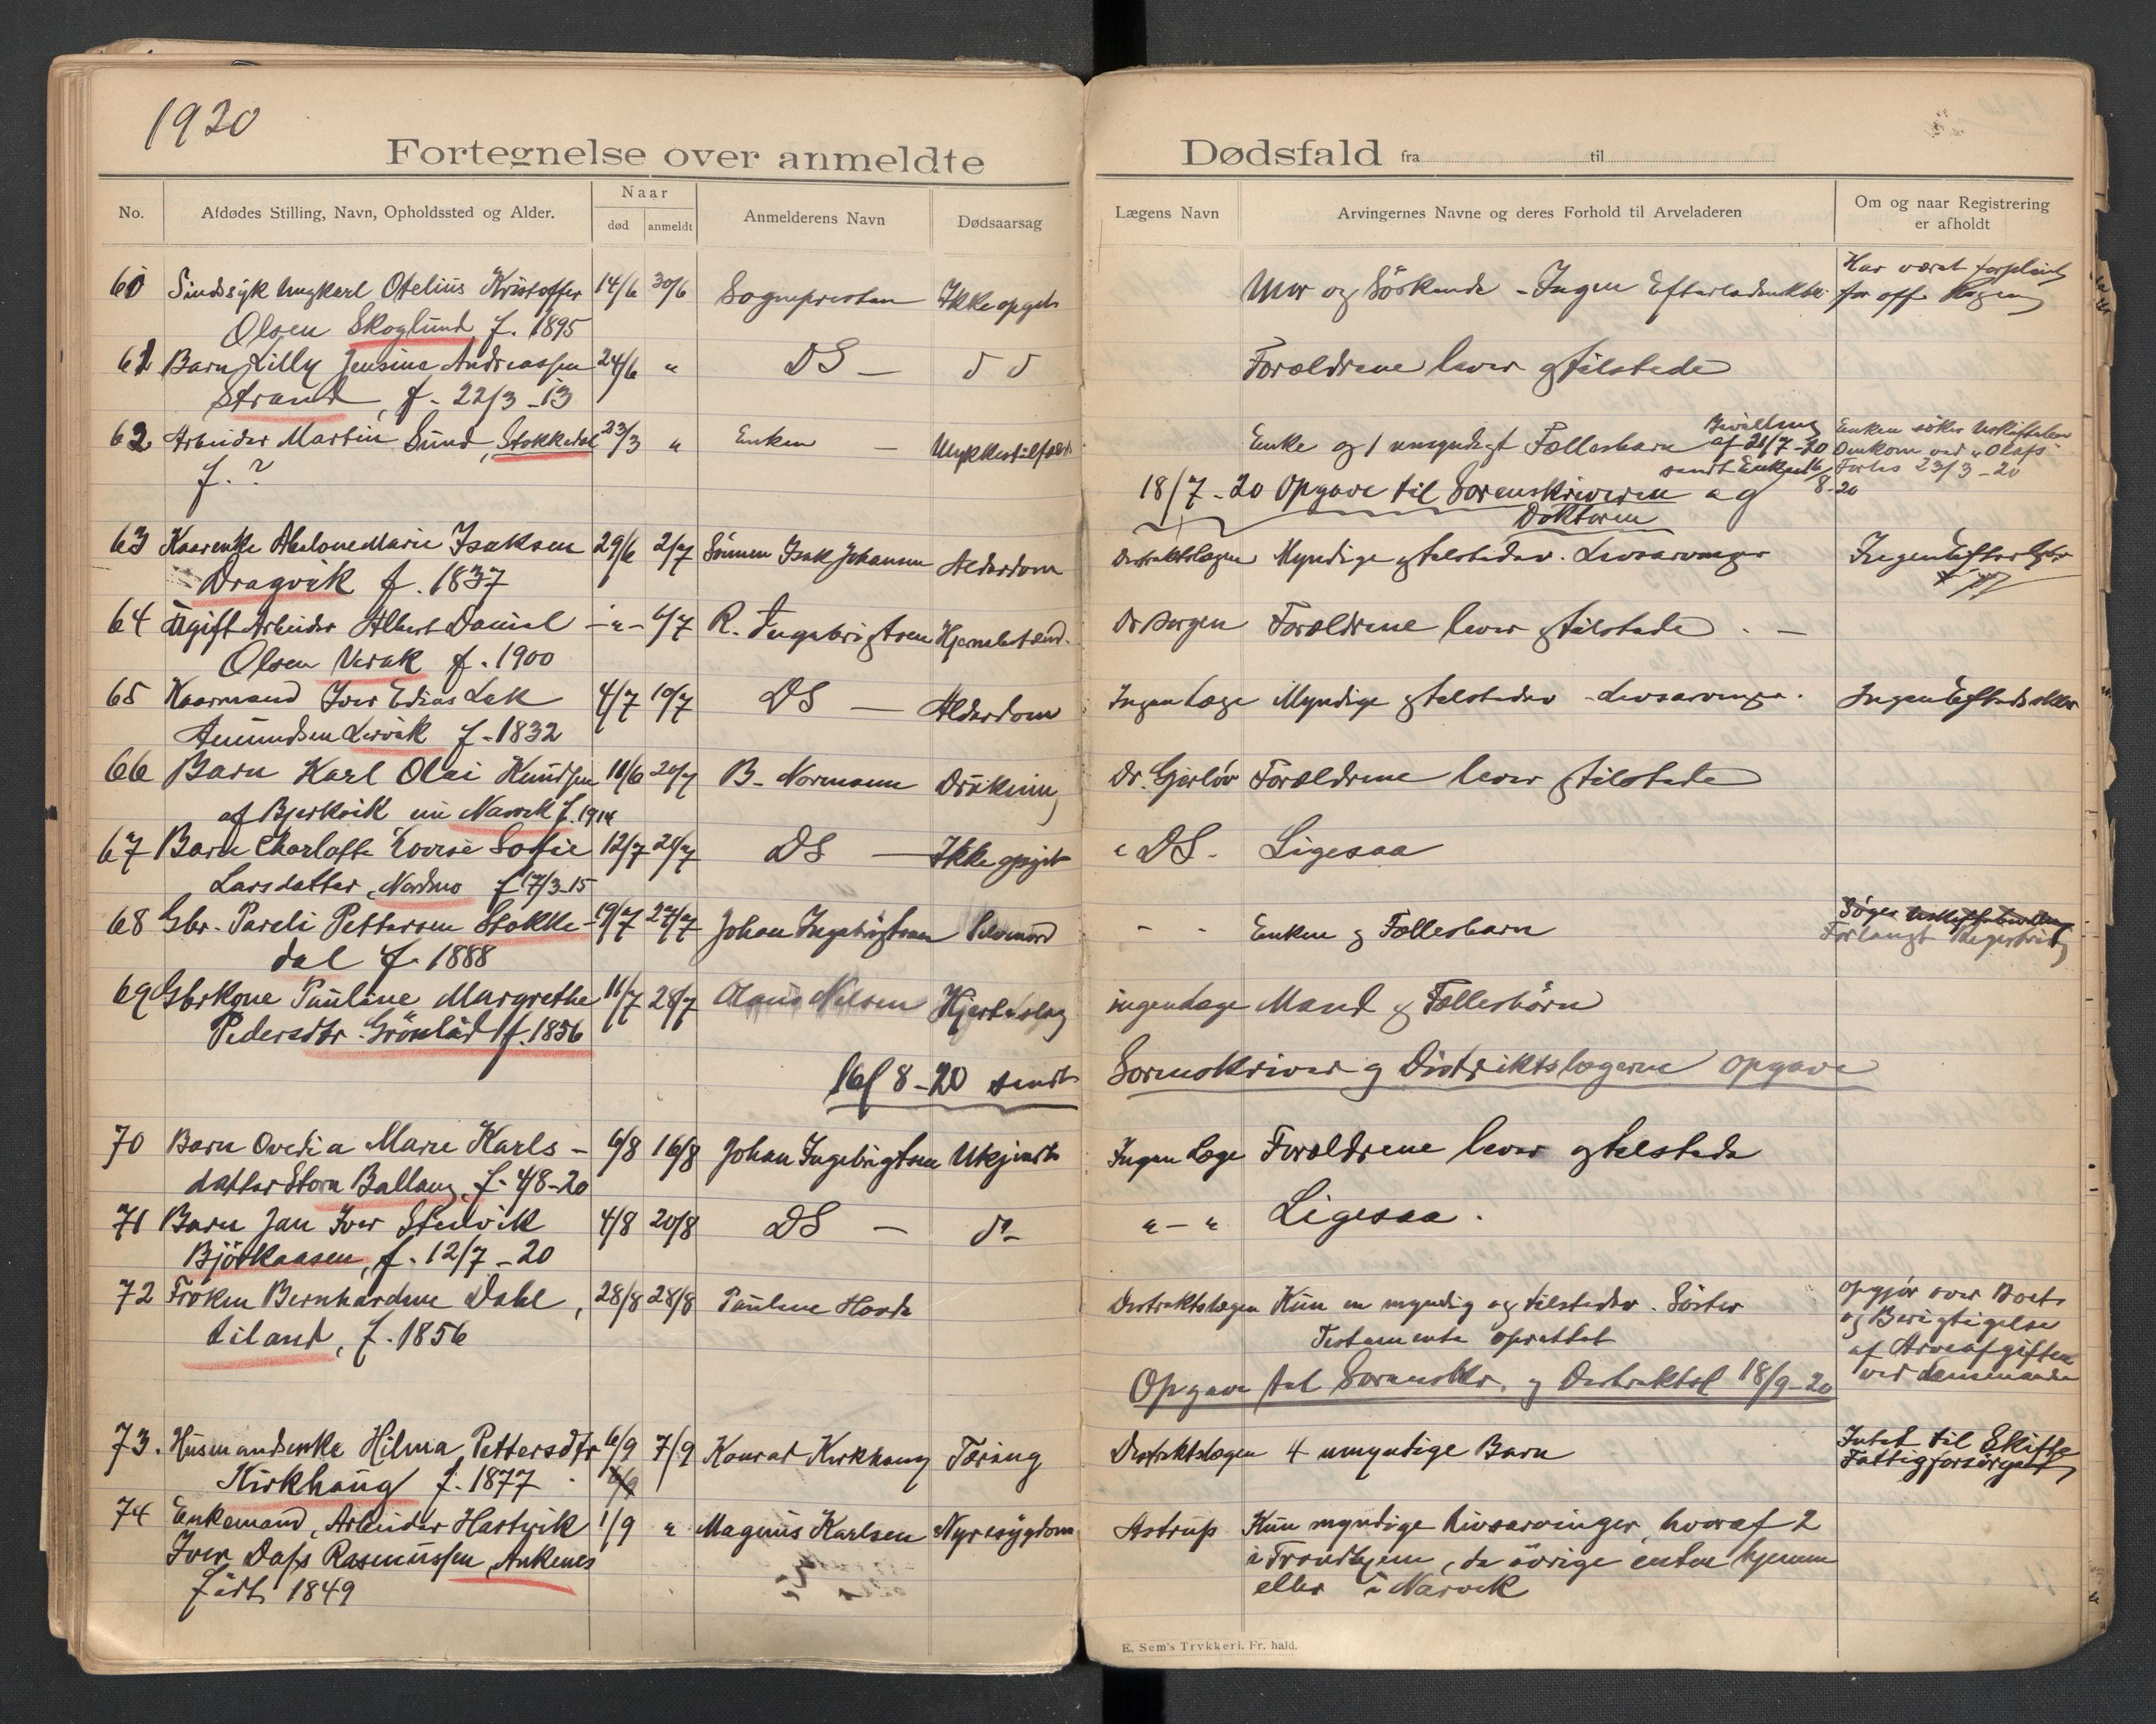 1920
Fortegnelse over anmeldte Dødsfald fra til
No.
Afdødes Stilling, Navn, Opholdssted og Alder.
Naar
død
anmeldt
Anmelderens Navn
Dødsaarsag
Lægens Navn
Arvingernes Navne og deres Forhold til Arveladeren
Om og naar Registrering
er afholdt
60 Sindssyk Ungkarl Otelius Kristoffer 14/6 30/6 Sognepresten Ikke opgit Mor og Söskende - Ingen Har været
Olsen Skoglund f. 1895 for off.
61 Barn Lilly Jensine Andreassen 24/6 " DS — Forældrene lever og tilstede
Strand, f. 22/3-13
62 Arbeider Martin Sund, Stokkedal 23/3 " Enken — Ulykkestilfælde Enke og 1 umyndigt Fællesbarn Bevilling Enken söker
f. ? af 21/7-20 Omkom ved "Olafs
sendt Enken 16/8-20 Forlis 23/3-20
18/7-20 Opgave til Sorenskriveren og
Doktoren
63 Kaarenke Abelone Marie Isaksen 29/6 2/7 Sönnen Isak Johansen Alderdom Distriktslægen Myndige og tilstedev. Livsarvinger Ingen
Dragvik f. 1837
64 Ugift Arbeider Albert Daniel -"- 6/7 R. Ingebrigtsen Hjernebetænd. Dr Borgen Forældrene lever og tilstede . —
Olsen Virak f. 1900
65 Kaarmand Iver Edias Lak 4/7 10/7 DS — Alderdom Ingen Læge Myndige og tilstedev - Livsarvinger. Ingen
Amundsen Lervik f. 1832
66 Barn Karl Olai Knudsen 11/6 20/7 B. Normann Drukning Dr. Gjerløv Forældrene lever og tilstede
af Bjerkvik nu Narvik f. 1914
67 Barn Charlotte Lovise Sofie 12/7 21/7 DS — Ikke opgit " DS - Ligesaa
Larsdatter, Nordmo f 17/3-15
68 Gbr. Pareli Pettersen Stokke- 19/7 27/7 Johan Ingebrigtsen Selvmord - - Enken og Fællesbarn Søges
dal f. 1888 Forlangt Registrering
69 Gbrkone Pauline Margrethe 11/7 28/7 Olaus Nilsen Hjerteslag ingen Læge Mand og Fællesbörn
Pedersdtr. Grönlid f. 1856
16/8-20 sendt Sorenskriver og Distriktslægerne opgave
70 Barn Ovedia Marie Karls- 6/8 16/8 Johan Ingebrigtsen Ukjendt Ingen Læge Forældrene lever og tilstede
datter Stora Ballang, f. 4/8-20
71 Barn Jan Iver Stenvik 4/8 20/8 DS — do "-" Ligesaa.
Björkaasen, f. 12/7-20
72 Fröken Bernhardine Dahl, 28/8 28/8 Pauline Distriktslægen Kun en myndig og tilstedev. Söster opgjör over Boets
Liland, f. 1856 Testamente oprettet og Berigtigelse
af Arveafgiften
Opgave til Sorenskr. og Distriktsl 18/9-20 ved
73. Husmandsenke Hilma Pettersdtr 6/9 7/9 Konrad Kirkhaug Tæring Distriktslægen 4 umyndige Barn Intet til Skifte
Kirkhaug f. 1877 Fattigforsörget
74 Enkemand, Arbeider Hartvik 1/9 " Magnus Karlsen Nyresygdom Astrup Kun myndige Livsarvinger, hvoraf 2
Iver Dass Rasmussen, Ankenes i Trondhjem, de övrige enten hjemme
Födt 1849 eller i Narvik
E. Sem's Trykkeri. Fr. hald.